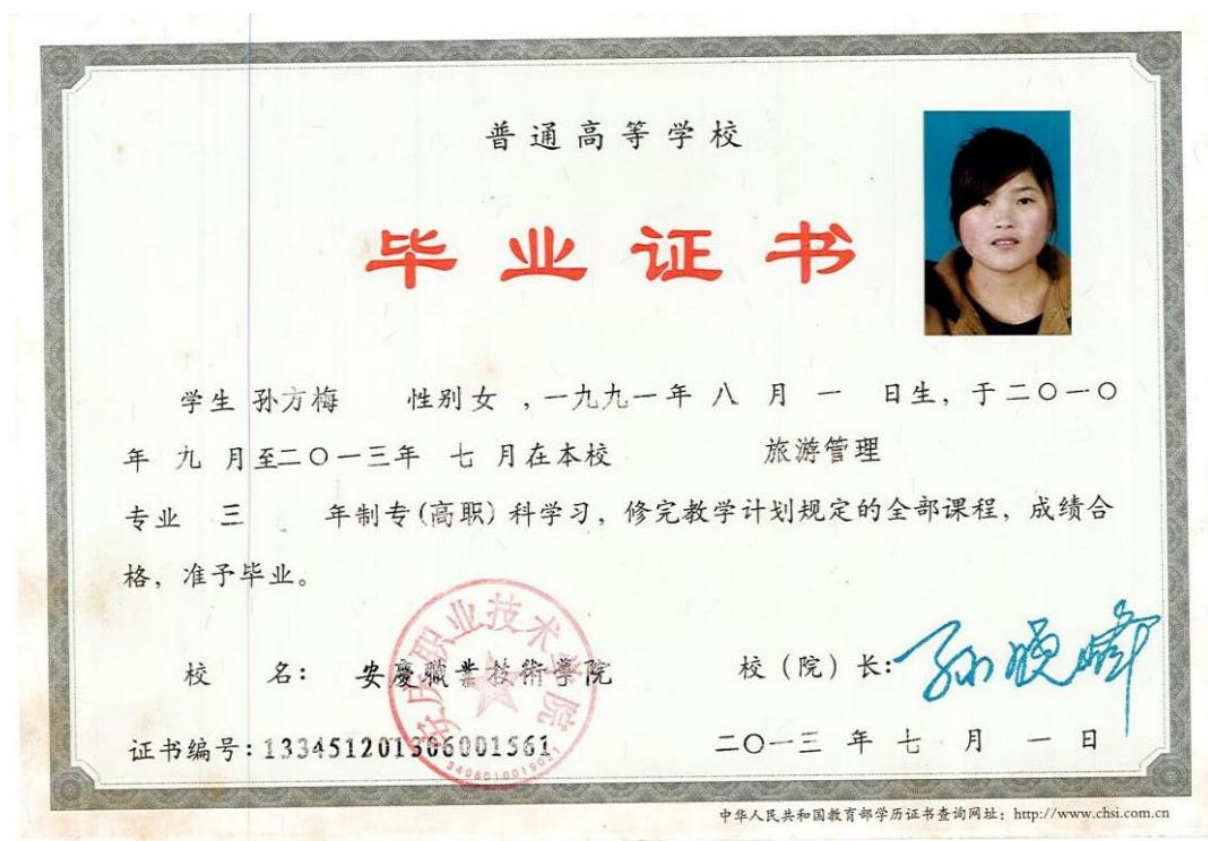 普通高等学校
毕业证书
学生 孙方梅 性别 女 ，一九九一年 八 月 一 日生，于二〇一〇
年 九 月至二〇一三年 七 月在本校 旅游管理
专业 三 年制专(高职)科学习，修完教学计划规定的全部课程，成绩合
格，准予毕业。
校 名： 安慶職業技術學院 校（院）长：孙晓峰
安庆职业技术学院
证书编号：133451201306001561 二〇一三 年 七 月 一 日
中华人民共和国教育部学历证书查询网址：http://www.chsi.com.cn